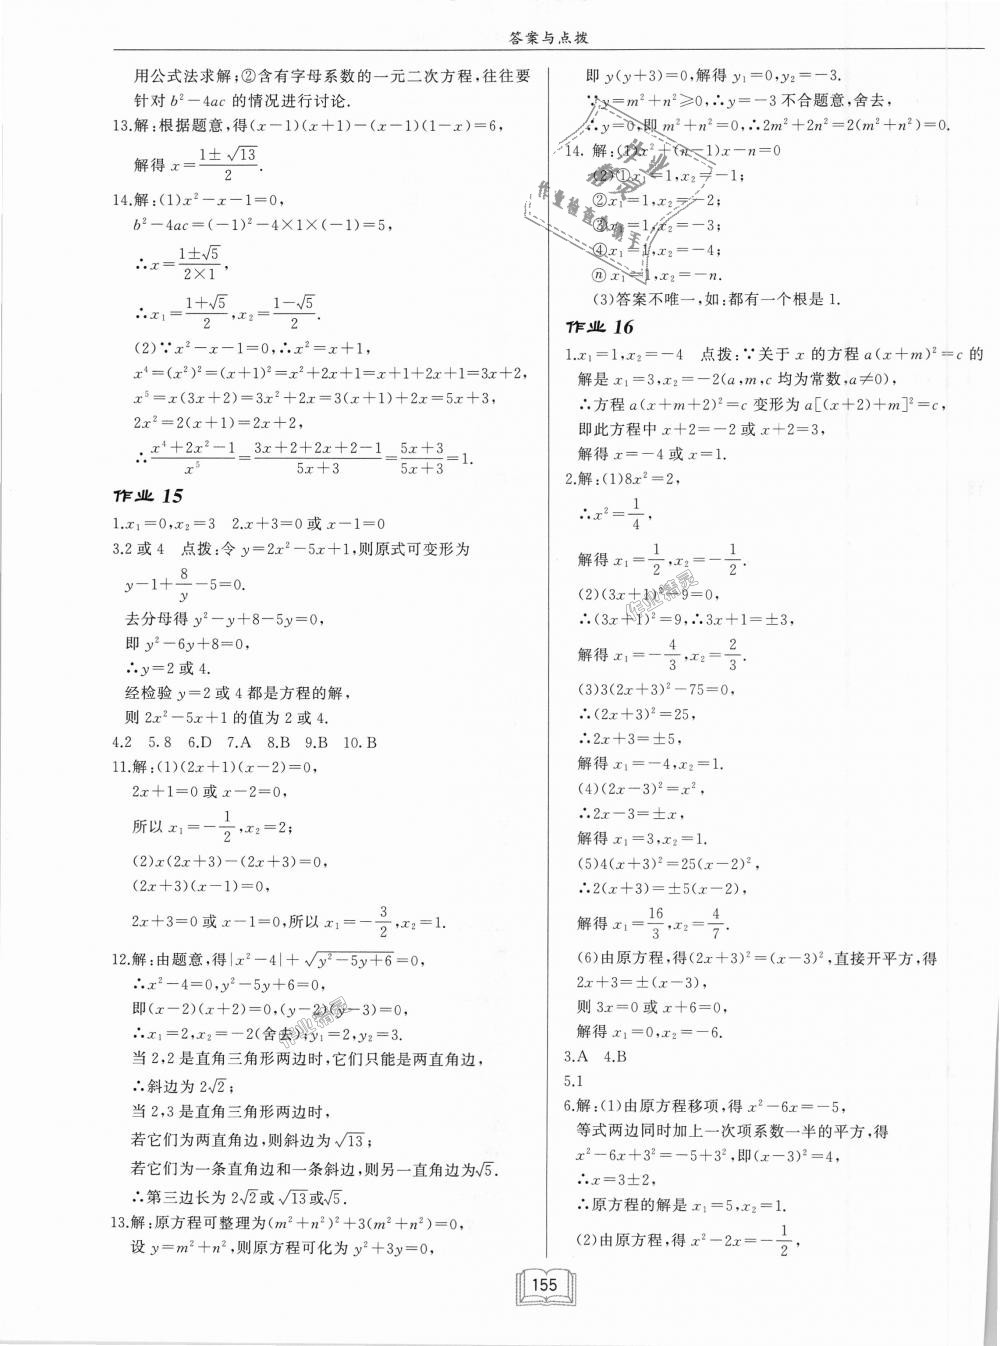 答案与点拨
用公式法求解;②含有字母系数的一元二次方程,往往要
针对 b²－4ac 的情况进行讨论.
13.解:根据题意,得(x－1)(x＋1)－(x－1)(1－x)＝6,
解得 x＝(1±√13)/2.
14.解:(1)x²－x－1＝0,
b²－4ac＝(－1)²－4×1×(－1)＝5,
∴x＝(1±√5)/(2×1),
∴x₁＝(1＋√5)/2,x₂＝(1－√5)/2.
(2)∵x²－x－1＝0,∴x²＝x＋1,
x⁴＝(x²)²＝(x＋1)²＝x²＋2x＋1＝x＋1＋2x＋1＝3x＋2,
x⁵＝x(3x＋2)＝3x²＋2x＝3(x＋1)＋2x＝5x＋3,
2x²＝2(x＋1)＝2x＋2,
∴(x⁴＋2x²－1)/x⁵＝(3x＋2＋2x＋2－1)/(5x＋3)＝(5x＋3)/(5x＋3)＝1.
作业 15
1.x₁＝0,x₂＝3 2.x＋3＝0 或 x－1＝0
3.2 或 4 点拨:令 y＝2x²－5x＋1,则原式可变形为
y－1＋8/y－5＝0.
去分母得 y²－y＋8－5y＝0,
即 y²－6y＋8＝0,
∴y＝2 或 4.
经检验 y＝2 或 4 都是方程的解,
则 2x²－5x＋1 的值为 2 或 4.
4.2 5.8 6.D 7.A 8.B 9.B 10.B
11.解:(1)(2x＋1)(x－2)＝0,
2x＋1＝0 或 x－2＝0,
所以 x₁＝－1/2,x₂＝2;
(2)x(2x＋3)－(2x＋3)＝0,
(2x＋3)(x－1)＝0,
2x＋3＝0 或 x－1＝0,所以 x₁＝－3/2,x₂＝1.
12.解:由题意,得|x²－4|＋√(y²－5y＋6)＝0,
∴x²－4＝0,y²－5y＋6＝0,
即(x－2)(x＋2)＝0,(y－2)(y－3)＝0,
∴x₁＝2,x₂＝－2(舍去);y₁＝2,y₂＝3.
当 2,2 是直角三角形两边时,它们只能是两直角边,
∴斜边为 2√2;
当 2,3 是直角三角形两边时,
若它们为两直角边,则斜边为√13;
若它们为一条直角边和一条斜边,则另一直角边为√5.
∴第三边长为 2√2或√13或√5.
13.解:原方程可整理为(m²＋n²)²＋3(m²＋n²)＝0,
设 y＝m²＋n²,则原方程可化为 y²＋3y＝0,
即 y(y＋3)＝0,解得 y₁＝0,y₂＝－3.
∵y＝m²＋n²≥0,∴y＝－3 不合题意,舍去,
∴y＝0,即 m²＋n²＝0,∴2m²＋2n²＝2(m²＋n²)＝0.
14. 解:(1)x²＋(n－1)x－n＝0
(2)①x₁＝1,x₂＝－1;
②x₁＝1,x₂＝－2;
③x₁＝1,x₂＝－3;
④x₁＝1,x₂＝－4;
ⓝ x₁＝1,x₂＝－n.
(3)答案不唯一,如:都有一个根是 1.
作业 16
1.x₁＝1,x₂＝－4 点拨:∵关于 x 的方程 a(x＋m)²＝c 的
解是 x₁＝3,x₂＝－2(a,m,c 均为常数,a≠0),
∴方程 a(x＋m＋2)²＝c 变形为 a[(x＋2)＋m]²＝c,
即此方程中 x＋2＝－2 或 x＋2＝3,
解得 x＝－4 或 x＝1.
2.解:(1)8x²＝2,
∴x²＝1/4,
解得 x₁＝1/2,x₂＝－1/2.
(2)(3x＋1)²－9＝0,
∴(3x＋1)²＝9,∴3x＋1＝±3,
解得 x₁＝－4/3,x₂＝2/3.
(3)3(2x＋3)²－75＝0,
∴(2x＋3)²＝25,
∴2x＋3＝±5,
解得 x₁＝－4,x₂＝1.
(4)(2x－3)²＝x²,
∴2x－3＝±x,
解得 x₁＝3,x₂＝1.
(5)4(x＋3)²＝25(x－2)²,
∴2(x＋3)＝±5(x－2),
解得 x₁＝16/3,x₂＝4/7.
(6)由原方程,得(2x＋3)²＝(x－3)²,直接开平方,得
2x＋3＝±(x－3),
则 3x＝0 或 x＋6＝0,
解得 x₁＝0,x₂＝－6.
3.A 4.B
5.1
6.解:(1)由原方程移项,得 x²－6x＝－5,
等式两边同时加上一次项系数一半的平方,得
x²－6x＋3²＝－5＋3²,即(x－3)²＝4,
∴x＝3±2,
∴原方程的解是 x₁＝5,x₂＝1.
(2)由原方程,得 x²－2x＝－1/2,
155